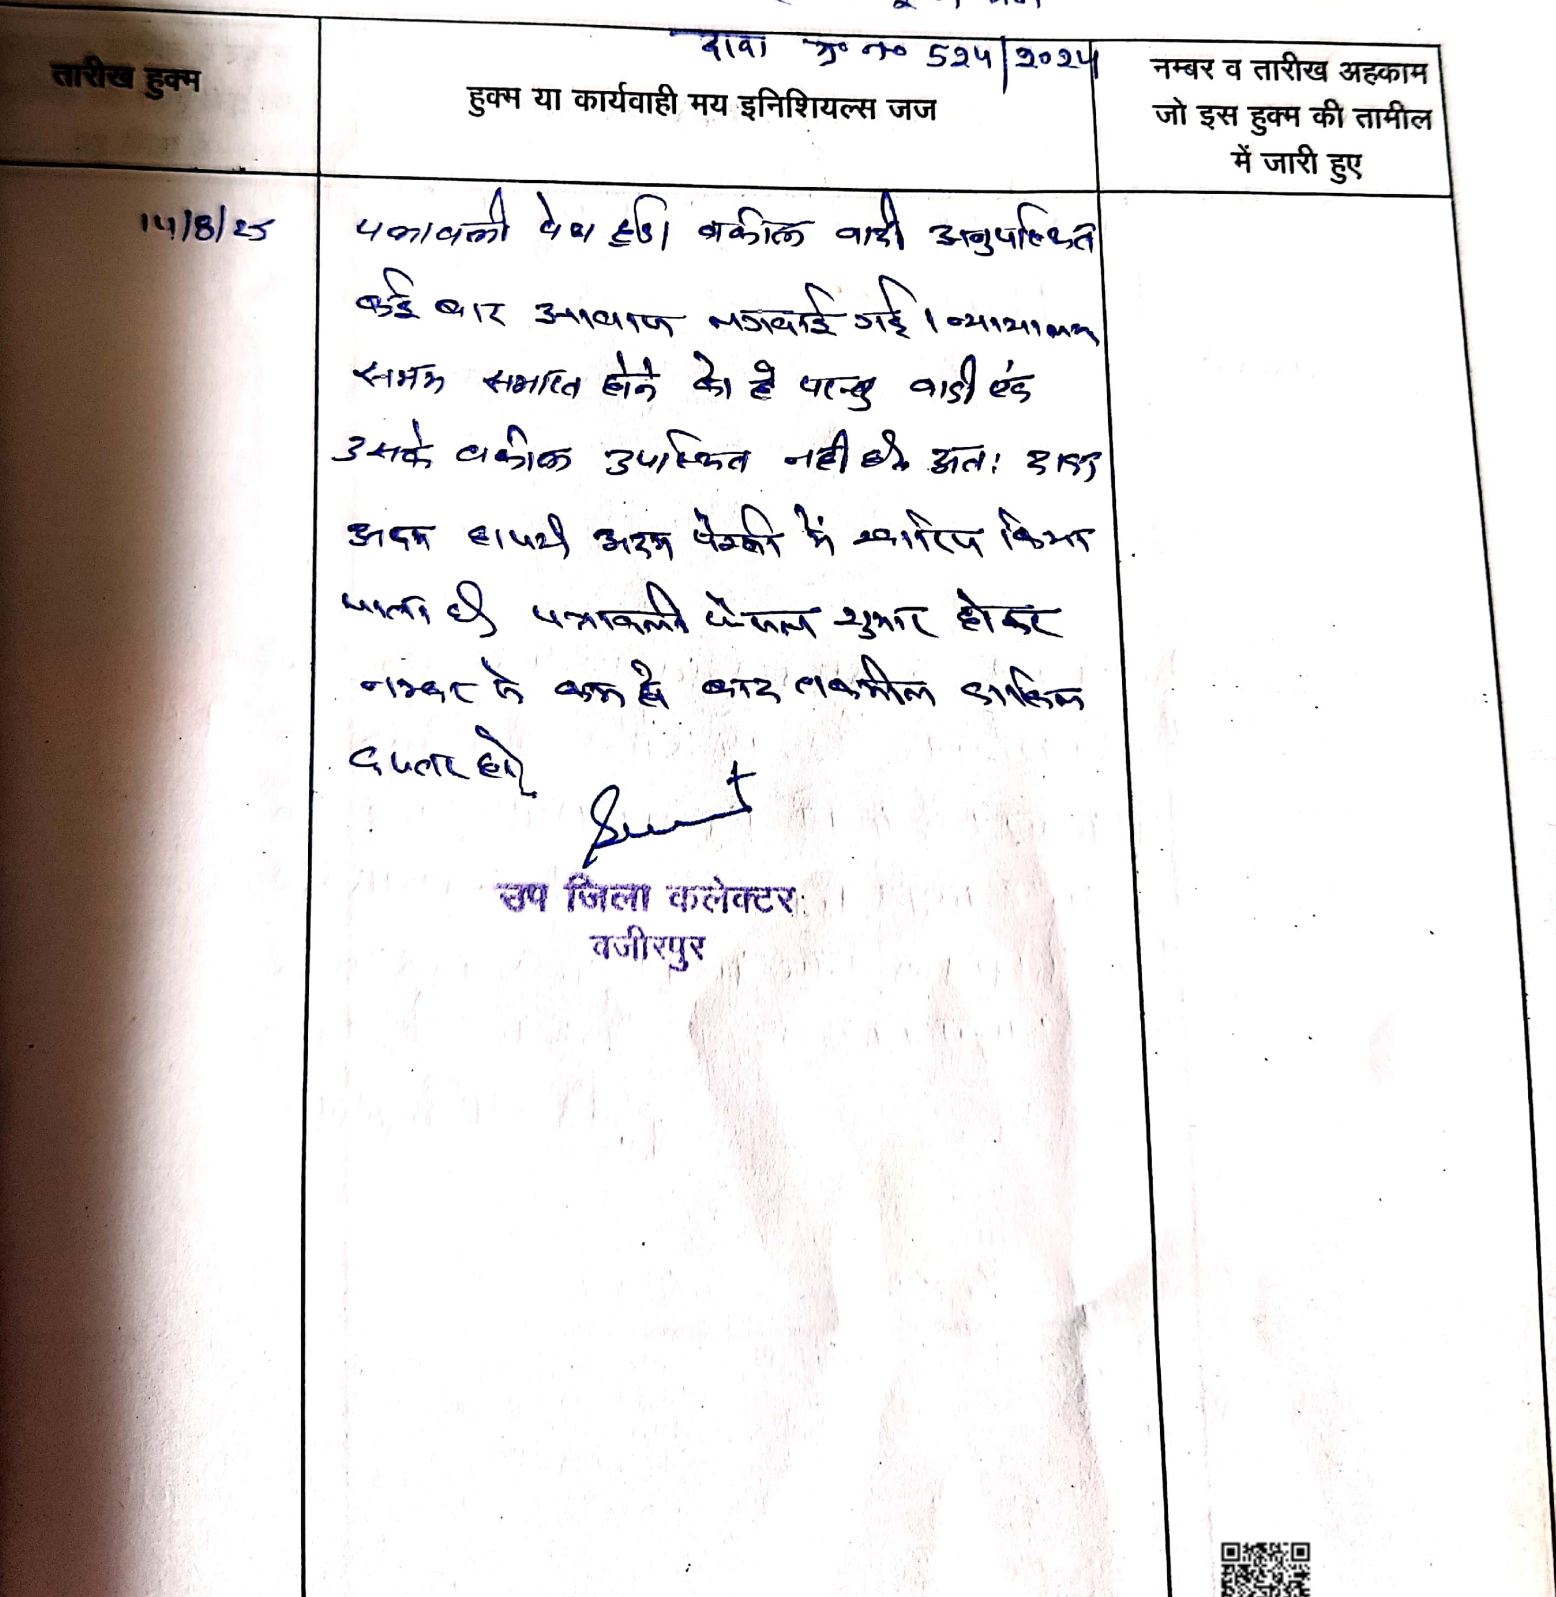 दावा मु० न० 524/2024
तारीख हुक्म
हुक्म या कार्यवाही मय इनिशियल्स जज
नम्बर व तारीख अहकाम
जो इस हुक्म की तामील
में जारी हुए
14/8/25
पत्रावली पेश हुई। वकील वादी अनुपस्थित
कई बार आवाज लगवाई गई। न्यायालय
समय समाप्त होने को है परन्तु वादी एवं
उसके वकील उपस्थित नहीं है। अतः दावा
अदम हाजरी अदम पैरवी में खारिज किया
जाता है। पत्रावली फैसल शुमार होकर
नम्बर से कम हो बाद तकमील दाखिल
दफ्तर हो।
उप जिला कलेक्टर
वजीरपुर